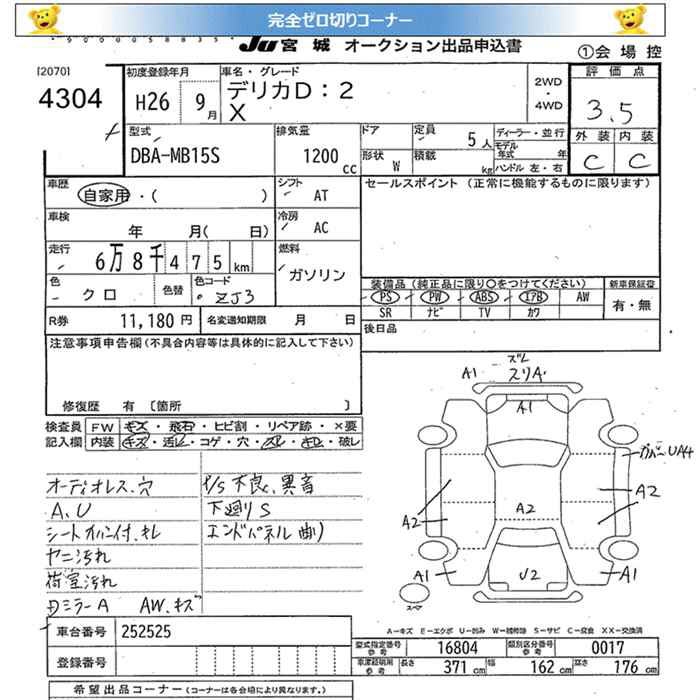 完全ゼロ切りコーナー
JU宮城 オークション出品申込書
①会場控
[2070]
4304
初度登録年月
H26 9月
車名・グレード
デリカD:2
X
2WD
・
4WD
評価点
3.5
外装 内装
C C
型式
DBA-MB15S
排気量
1200cc
ドア
定員 5人
ディーラー・並行
モデル年式 年
形状 W
積載 kg
ハンドル 左・右
車歴
自家用・( )
シフト
AT
セールスポイント (正常に機能するものに限ります)
車検
年 月( 日)
冷房
AC
走行
6万8千475km
燃料
ガソリン
色
クロ
色替
色カラーコード
ZJ3
装備品(純正品に限り○をつけてください)
新車保証書
PS PW ABS エアB AW
有・無
SR ナビ TV カワ
R券 11,180円
名変通知期限 月 日
後日品
注意事項申告欄(不具合内容等は具体的に記入して下さい)
修復歴 有 〔箇所 〕
検査員記入欄
FW キズ・飛石・ヒビ割・リペア跡・×要
内装 キズ・汚レ・コゲ・穴・スレ・キレ・破レ
オーディオレス、穴
A、U
シートカバー付、キレ
ヤニ汚れ
荷室汚れ
Dミラー A AW、キズ
P/S不良、異音
下廻りS
エンドパネル曲り
A1
ズレ
スリA
A1
カバーUA4
A2
A2
A2
A1
U2
A1
スペア
A-キズ E-エクボ U-凹み W-補修跡 S-サビ C-腐食 XX-交換済
車台番号 252525
登録番号
型式指定番号 参考 16804
類別区分番号 参考 0017
車検証明用 参考
長さ 371cm 幅 162cm 高さ 176cm
希望出品コーナー(コーナーは各会場により異なります。)